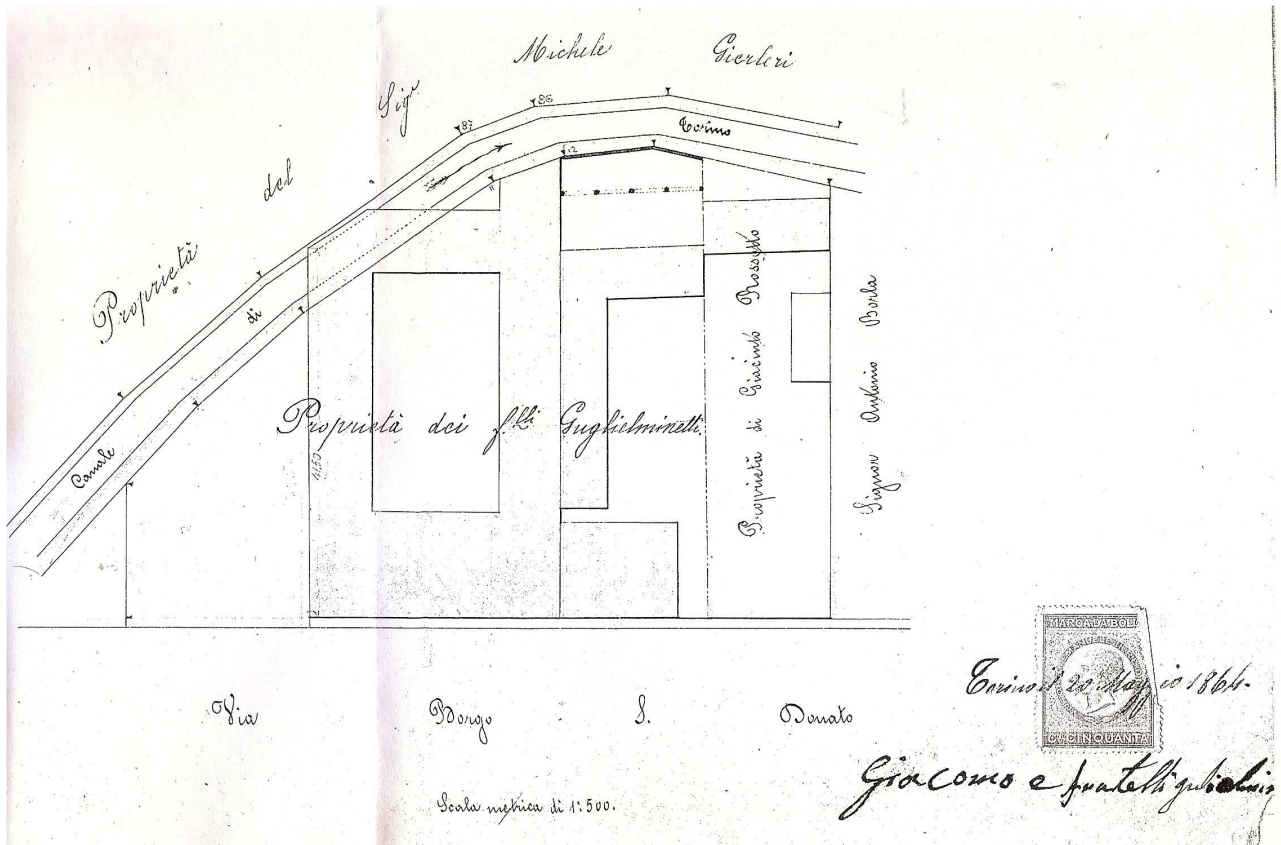 Proprietà del Sigr Michele Gierleri
87
86
12
11
Canale di Torino
Proprietà dei f.lli Guglielminetti.
41.50
Proprietà di Giacinto Rossetto
Signor Antonio Borla
Via Borgo S. Donato
Scala metrica di 1:500.
MARCA DA BOLLO
C. CINQUANTA
Torino il 20 Maggio 1864.
Giacomo e fratelli